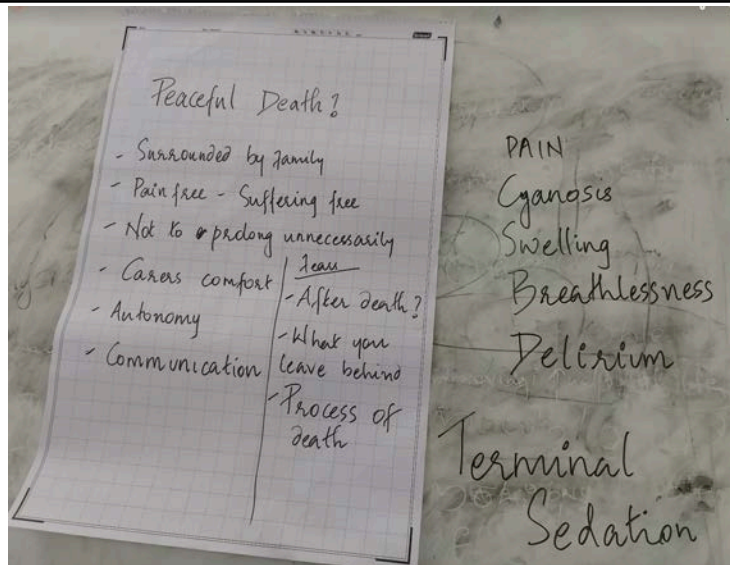 Peaceful Death?
- Surrounded by family
- Pain free - Suffering free
- Not to prolong unnecessarily
- Carers comfort
- Autonomy
- Communication
Fears
- After death?
- What you
leave behind
- Process of
death
PAIN
Cyanosis
Swelling
Breathlessness
Delirium
Terminal
Sedation